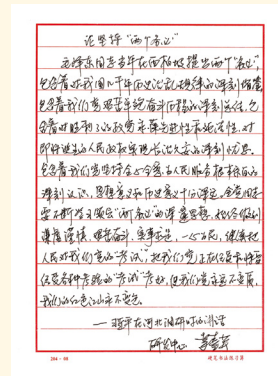 论坚持"两个务必"
毛泽东同志当年在西柏坡提出"两个务必",
包含着对我国几千年历史治乱规律的深刻借鉴
包含着我们党艰苦卓绝奋斗历程的深刻总结,包
含着对胜利了的政党永葆先进性和纯洁性、对
即将诞生的人民政权实现长治久安的深刻忧思,
包含着我们党坚持全心全意为人民服务根本宗旨的
深刻认识,思想意义和历史意义十分深远。全党同志
要不断学习领会"两个务必"的深邃思想,始终做到
谦虚谨慎、艰苦奋斗、实事求是、一心为民,继续把
人民对我们党的"考试"、把我们党正在经受和将要
经受各种考验的"考试"考好,使我们的党永远不变质、
我们的红色江山永不变色。
——习近平在河北调研时的讲话
研发中心
284-08
硬笔书法练习簿